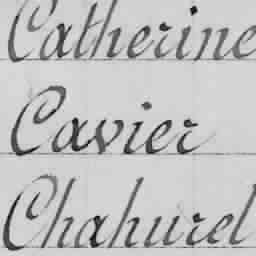 Catherine
Cavier
Chahurel